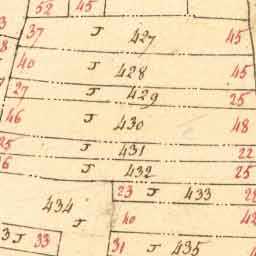 52 45
37 J 427 45
40 J 428 45
27 J 429 25
46 J 430 48
25 J 431 22
26 J 432 25
23 J 433
434 J 40
J 33
31 J 435